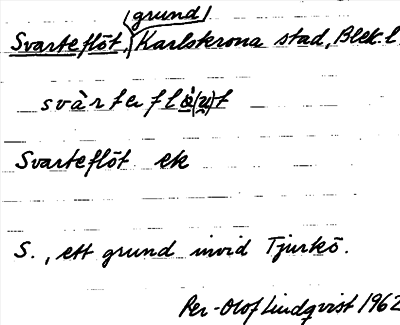 (grund)
Svarteflöt, Karlskrona stad, Blek. l
Svarteflöt ek
S., ett grund invid Tjurkö.
Per-Olof Lindqvist 1962